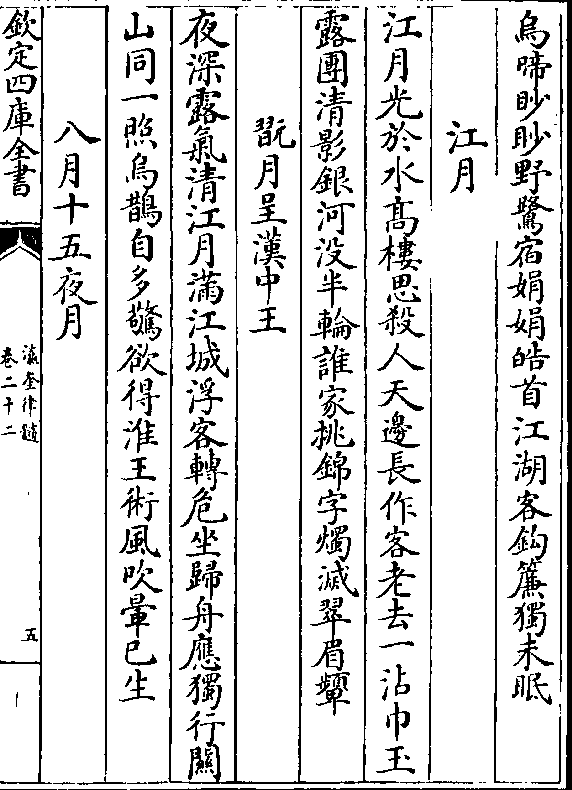 烏啼眇眇野鷺宿娟娟皓首江湖客鈎簾獨未眠
江月
江月光於水髙樓思殺人天邊長作客老去一沾巾玉
露團清影銀河没半輪誰家挑錦字燭滅翠眉顰
翫月呈漢中王
夜深露氣清江月滿江城浮客轉危坐歸舟應獨行闗
山同一照烏鵲自多驚欲得淮王術風吹暈已生
八月十五夜月
欽定四庫全書
瀛奎律髓
卷二十二
五